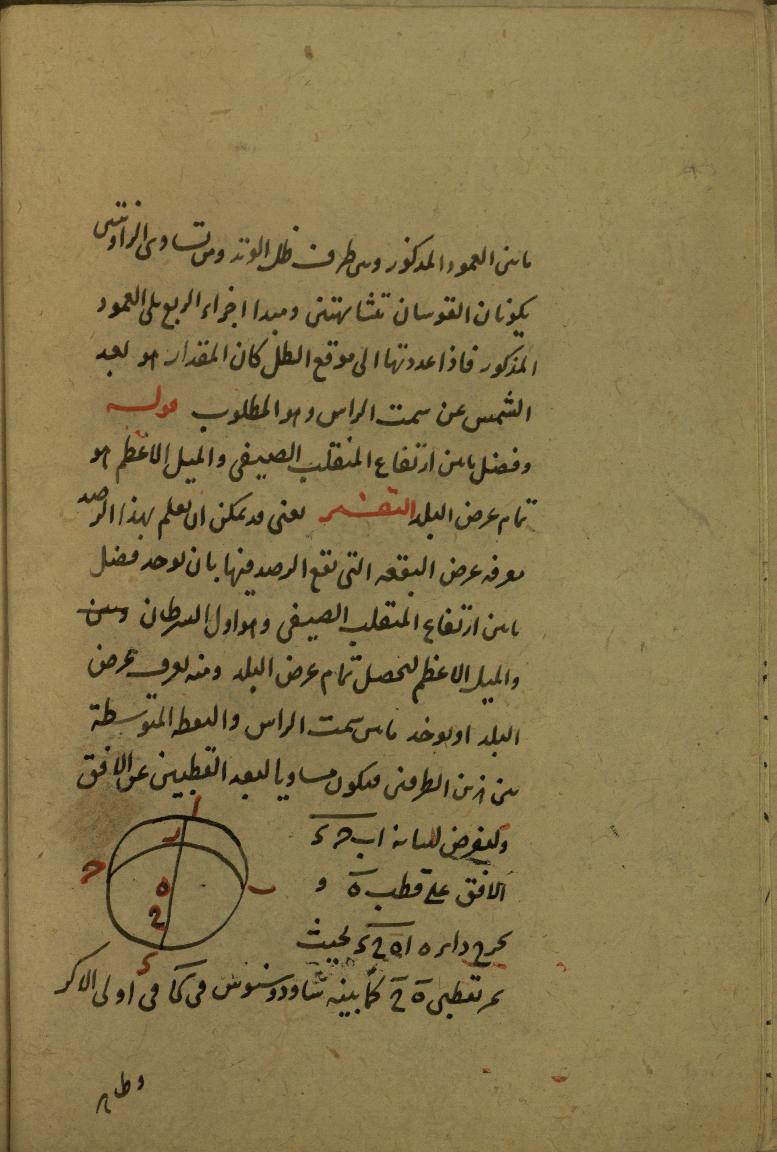 مابين العمود المذكور وبين طرف ظل الوتد ومن تساوى الزاويتين
يكونان القوسان متشابهتين ومبدا اجزاء الربع على العمود
المذكور فاذا عددتها الى موقع الظل كان المقدار هو بعد
الشمس عن سمت الراس وهو المطلوب قوله
وفضل مابين ارتفاع المنقلب الصيفى والميل الاعظم هو
تمام عرض البلد التفسير يعنى قد يمكن ان يعلم بهذا الرصد
معرفه عرض البقعه التى يقع الرصد فيها بان يوخذ فضل
مابين ارتفاع المنقلب الصيفى وهو اول السرطان وبين
والميل الاعظم ليحصل تمام عرض البلد ومنه يعرف عرض
البلد او يوخذ مابين سمت الراس والنقطه المتوسطة
بين هذين الطرفين فيكون مساويا لبعد القطبين عن الافق
وليفرض لبيانه ا ب ح د
الافق على قطب ه و
يخرج دايره ا ه ح د بحيث
يمر بقطبى ه ح كما بينه ثاودوسيوس فى كا فى اولى الاكر
ا
ر
ح
ب
ه
ح
د
وطا